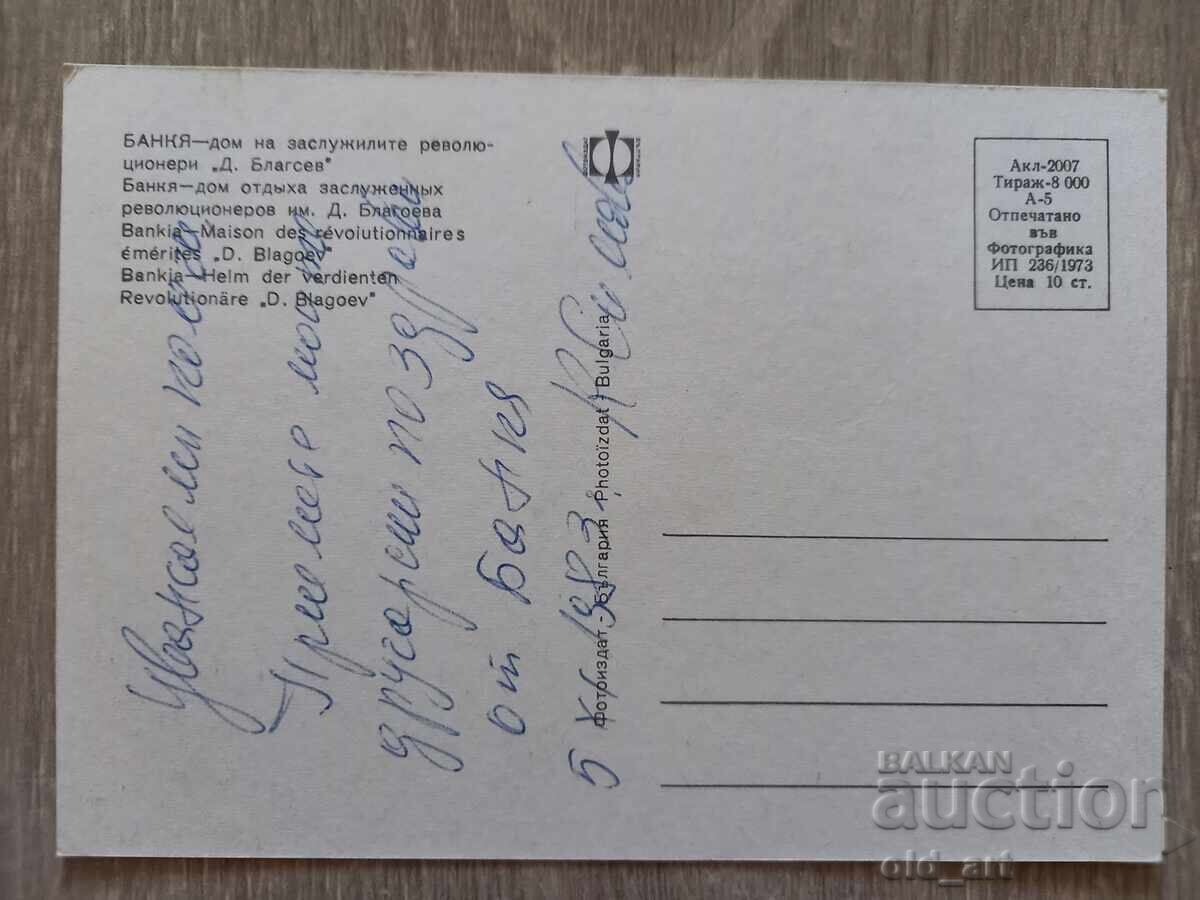 БАНКЯ—дом на заслужилите револю-
ционери „Д. Благсев"
Банкя—дом отдыха заслуженных
революционеров им. Д. Благоева
Bankia—Maison des révoiutionnaires
émérites „D. Blagoev"
Bankia—Helm der verdienten
Revolutionäre „D. Blagoev"
Акл-2007
Тираж-8 000
А-5
Отпечатано
във
Фотографика
ИП 236/1973
Цена 10 ст.
Фотоиздат - България - Photoïzdat - Bulgaria
Уважаеми
Приемете
другарски поздрави
от Банкя
5
BALKAN
auction
old_art